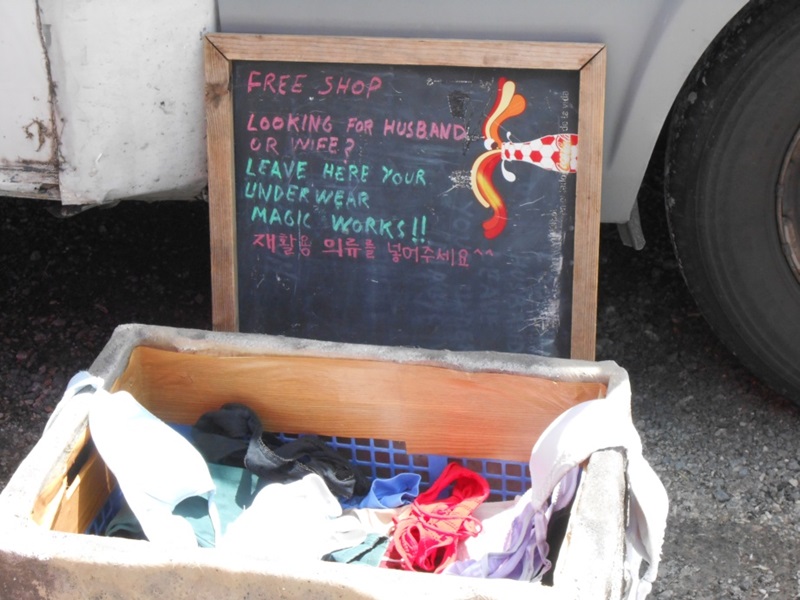 FREE SHOP
LOOKING FOR HUSBAND
OR WIFE?
LEAVE HERE YOUR
UNDERWEAR
MAGIC WORKS!!
재활용 의류를 넣어주세요^^
de la vida